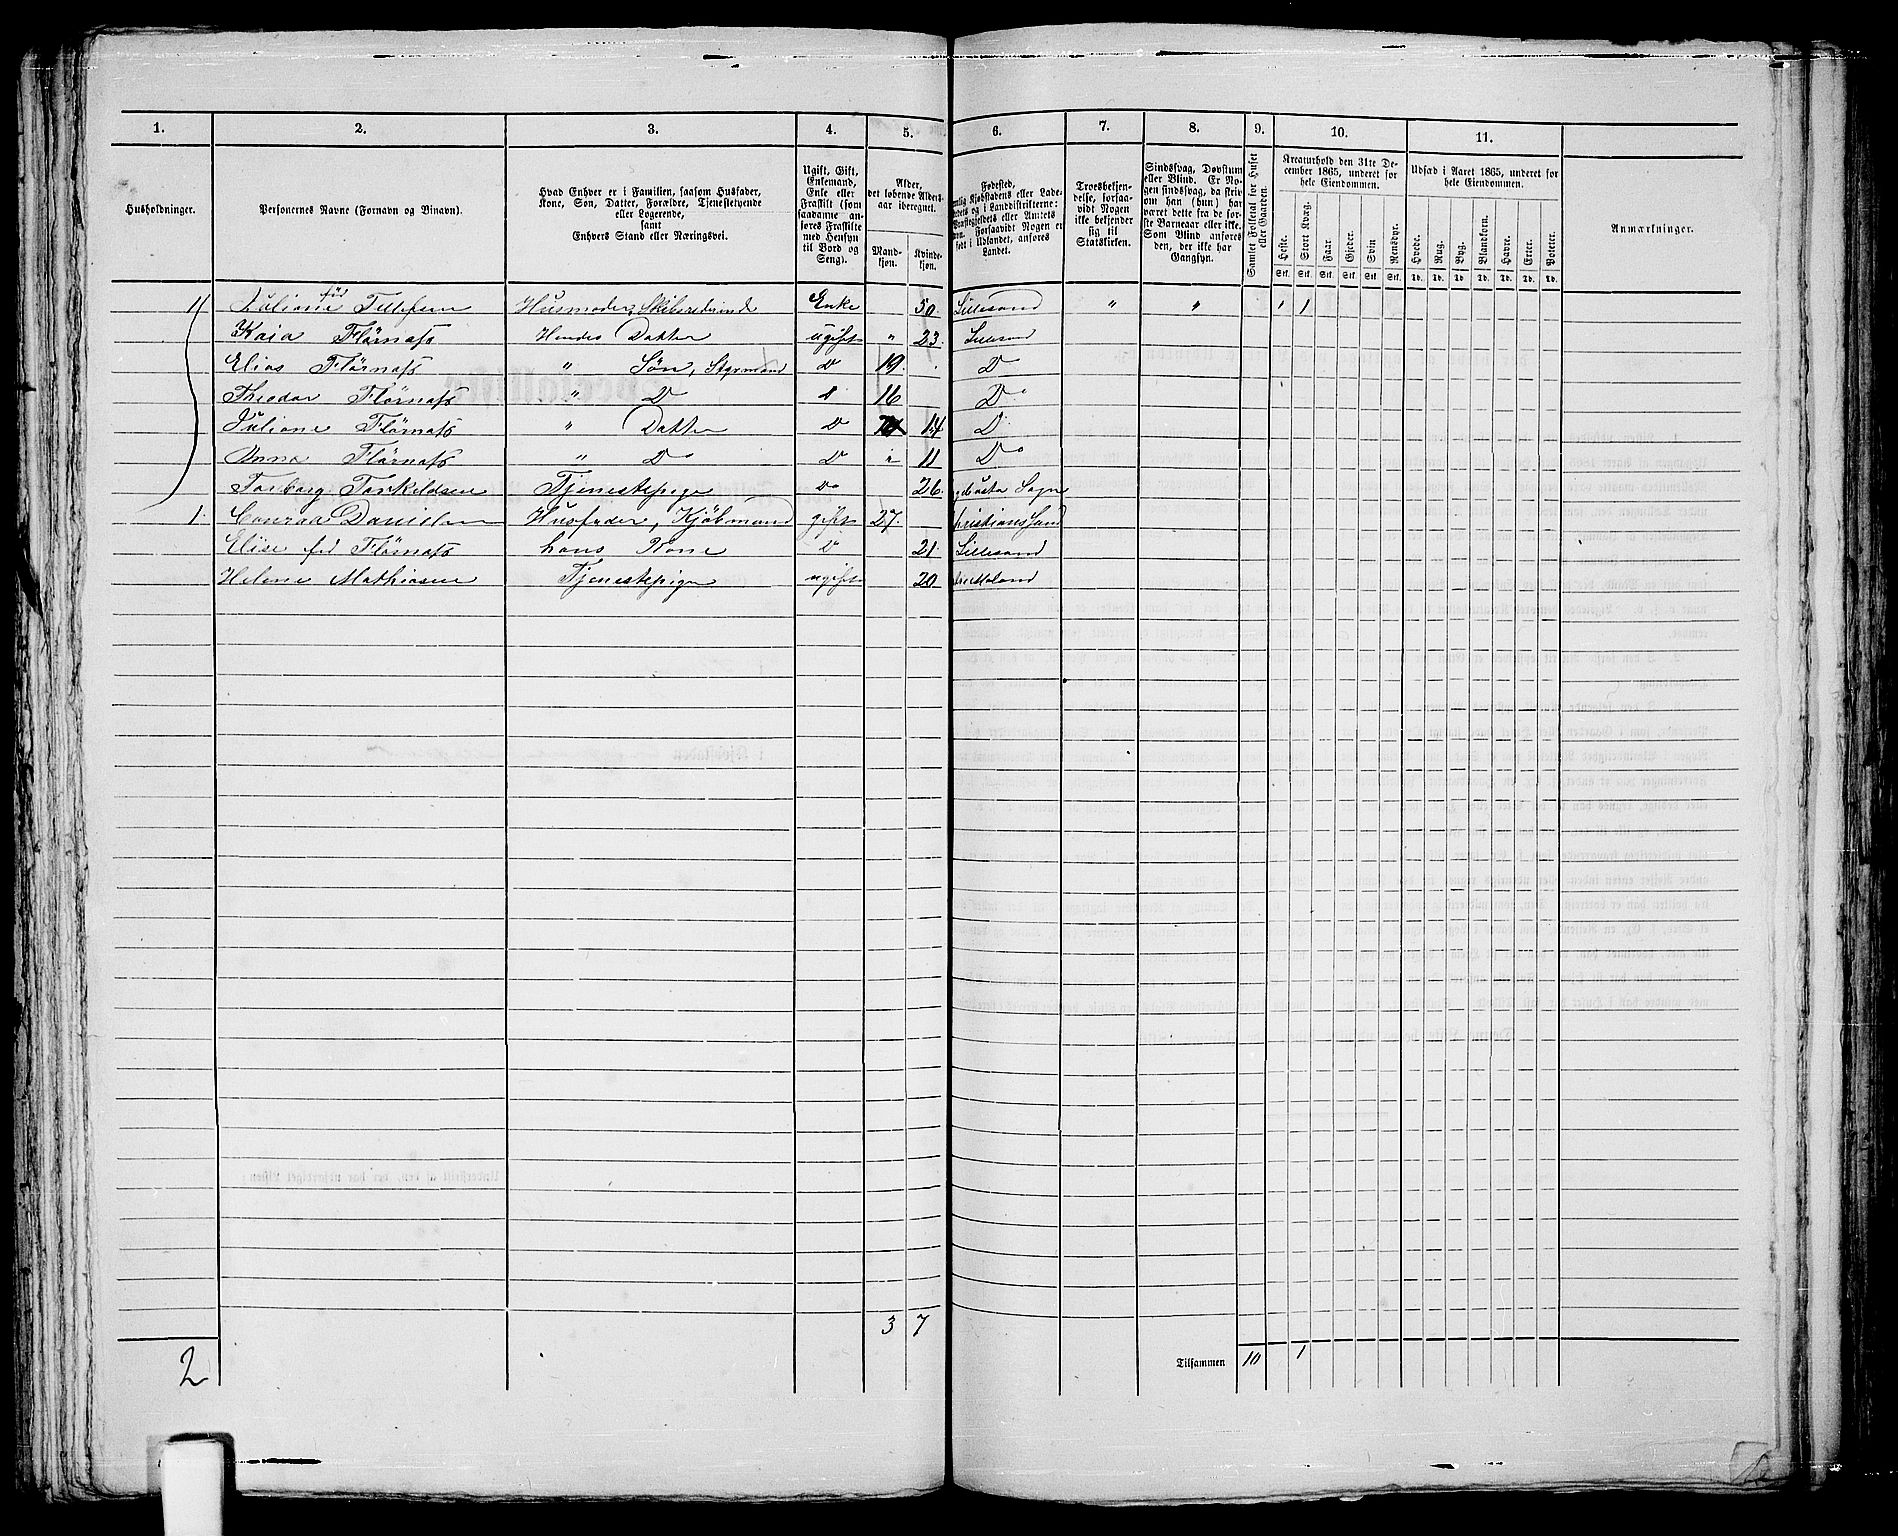 1. 2. 3. 4. 5. 6. 7. 8. 9. 10. 11.
Husholdninger.
Personernes Navne (Fornavn og Tilnavn).
Hvad Enhver er i Familien, saasom Husfader,
Kone, Søn, Datter, Forældre, Tjenestetyende
eller Logerende,
samt
Enhvers Stand eller Næringsvei.
Ugift, Gift,
Enkemand,
Enke eller
Fraskilt (som
saadanne an-
føres Fraskilte
med Hensyn
til Bord og
Seng).
Alder,
det løbende Alders-
aar iberegnet.
Mand-
kjøn.
Kvinde-
kjøn.
Fødested,
Troesbekjen-
delse, forsaa-
vidt Nogen
ikke bekjender
sig til
Statskirken.
Sindssvag, Døvstum
eller Blind. Er No-
gen sindssvag, da skriv
om han (hun) har
været dette fra de før-
ste Barneaar eller ikke.
Som Blind anføres
den, der ikke har
Gangsyn.
Samlet Folketal for Huset
eller Gaarden.
Kreaturhold den 31te De-
cember 1865, underet for
hele Eiendommen.
Heste. Stort Kvæg. Faar. Gjeder. Svin Rensdyr.
Stk. Stk. Stk. Stk. Stk. Stk.
Udsæd i Aaret 1865, underet for
hele Eiendommen.
Hvede. Rug. Byg. Blandkorn. Havre. Erter. Poteter.
Td. Td. Td. Td. Td. Td. Td.
Anmærkninger.
1 Juliane Tellefsen Husmoder, Enke 50. Lillesand " " 1
Kaia Flørnæss Hendes Datter ugift " 23. Lillesand
Elias Flørnæss " Søn, Styrmand Do 19. Do
Theodor Flørnæss " Do 16 Do
Juliane Flørnæss " Datter Do 14 Do
Anna Flørnæss " Do Do 11 Do
Torborg Torkildsen Tjenestepige Do 26. Sogn
1. Danielsen Husfader, Kjøbmand gift 27.
Elise fød Flørnæss hans Kone Do 21. Lillesand
Helene Mathiasen Tjenestepige ugift 20
3 7
Tilsammen 10 1
2